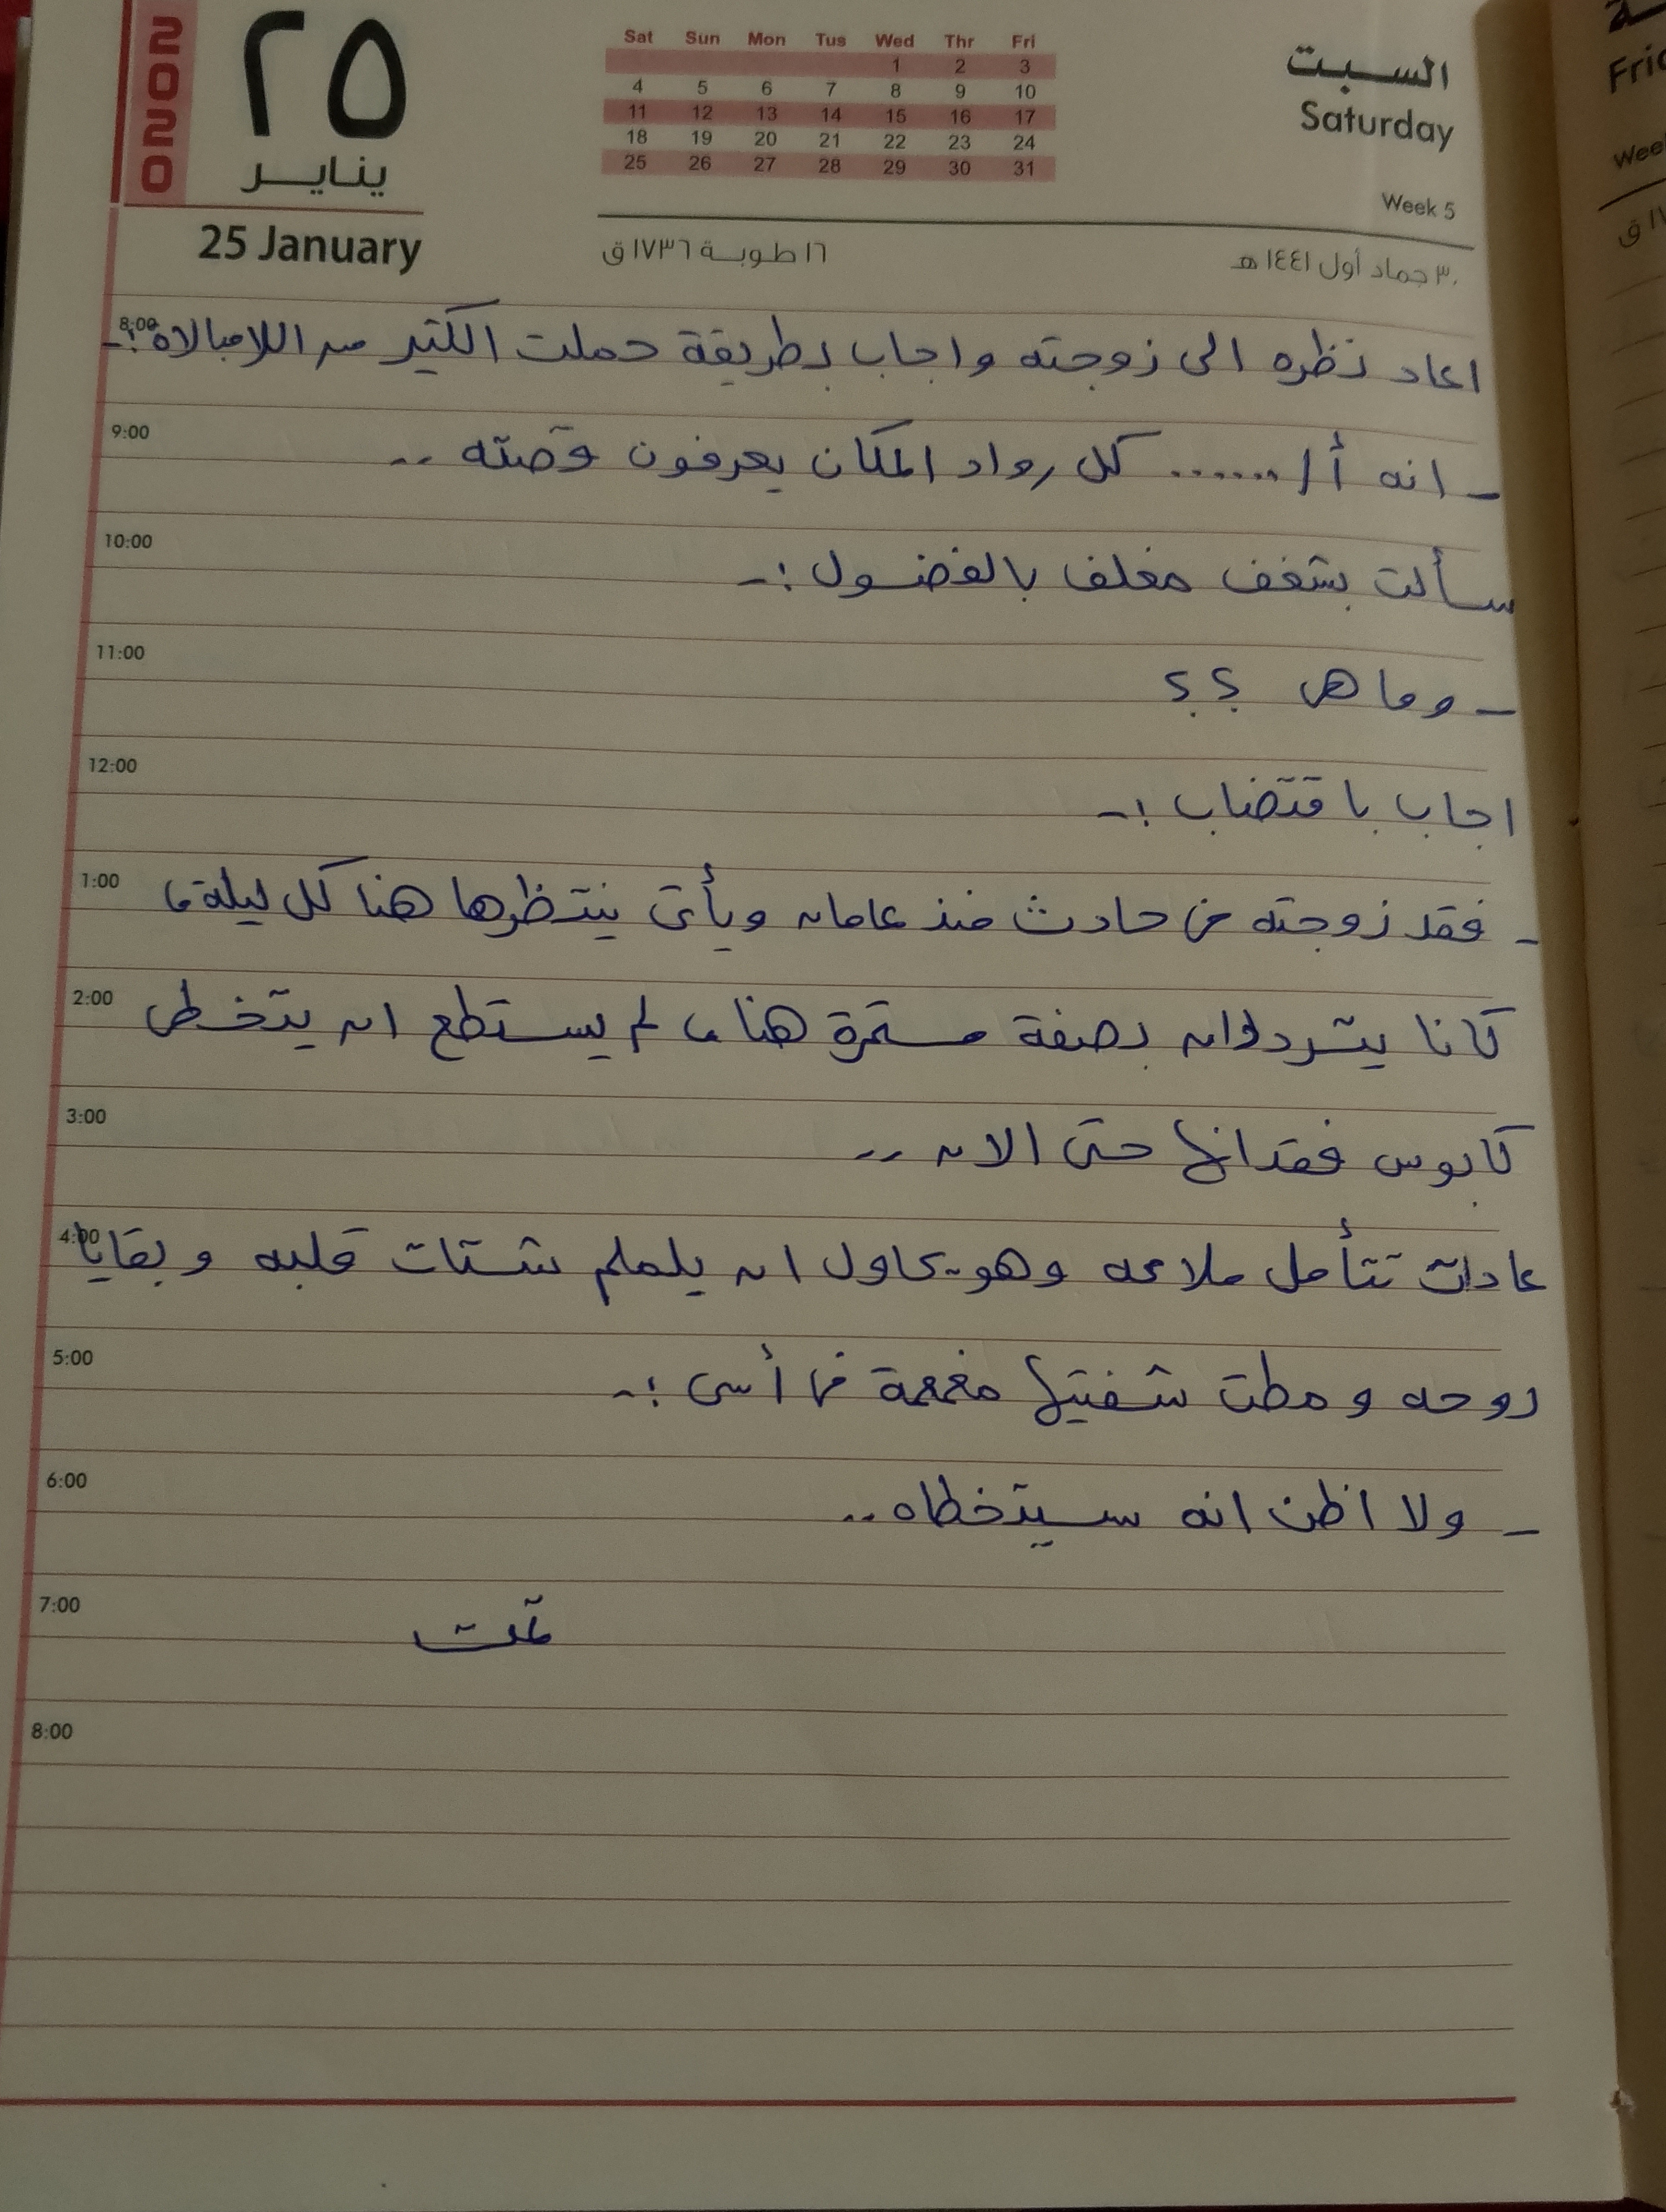 2020
٢٥
يناير
25 January
Sat Sun Mon Tus Wed Thr Fri
1 2 3
4 5 6 7 8 9 10
11 12 13 14 15 16 17
18 19 20 21 22 23 24
25 26 27 28 29 30 31
السبت
Saturday
Week 5
٣٠ جماد أول ١٤٤١ هـ
١٦ طوبة ١٧٣٦ ق
8:00 اعاد نظره الى زوجته واجاب بطريقة حملت الكثير من اللامبالاه :-
9:00 - انه أ / ...... كل رواد المكان يعرفون قصته ..
10:00 سألت بشغف مغلف بالفضول :-
11:00 - وما هى ؟ ؟
12:00 اجاب باقتضاب :-
1:00 - فقد زوجته في حادث منذ عامان ويأتى ينتظرها هنا كل ليلة ،
2:00 كانا يترددان بصفة مستمرة هنا ، لم يستطع ان يتخطى
3:00 كابوس فقدانها حتى الان ..
4:00 عادت تتأمل ملامحه وهو يحاول ان يلملم شتات قلبه و بقايا
5:00 روحه و مطت شفتيها مغمغمة فى أسى :-
6:00 - ولا اظن انه سيتخطاه ..
7:00 تمت
8:00
Wee